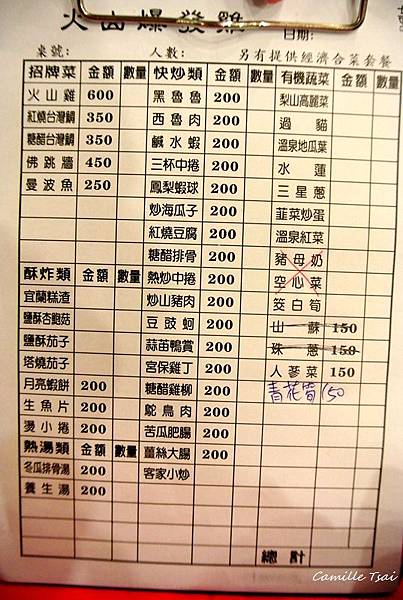 火山爆發雞
日期:
桌號: 人數: 另有提供經濟合菜套餐
招牌菜 金額 數量 快炒類 金額 數量 有機蔬菜 金額 數量
火山雞 600 黑魯魯 200 梨山高麗菜
紅燒台灣鯛 350 西魯肉 200 過貓
糖醋台灣鯛 350 鹹水蝦 200 溫泉地瓜葉
佛跳牆 450 三杯中捲 200 水蓮
曼波魚 250 鳳梨蝦球 200 三星蔥
炒海瓜子 200 韮菜炒蛋
紅燒豆腐 200 溫泉紅菜
糖醋排骨 200 豬母奶
酥炸類 金額 數量 熱炒中捲 200 空心菜
宜蘭糕渣 炒山豬肉 200 筊白筍
鹽酥杏鮑菇 豆豉蚵 200 山蘇 150
鹽酥茄子 蒜苗鴨賞 200 珠蔥 150
塔燒茄子 宮保雞丁 200 人蔘菜 150
月亮蝦餅 200 糖醋雞柳 200 青花筍 150
生魚片 200 鴕鳥肉 200
燙小捲 200 苦瓜肥腸 200
熱湯類 金額 數量 薑絲大腸 200
冬瓜排骨湯 200 客家小炒
養生湯 200
總計
Camille Tsai